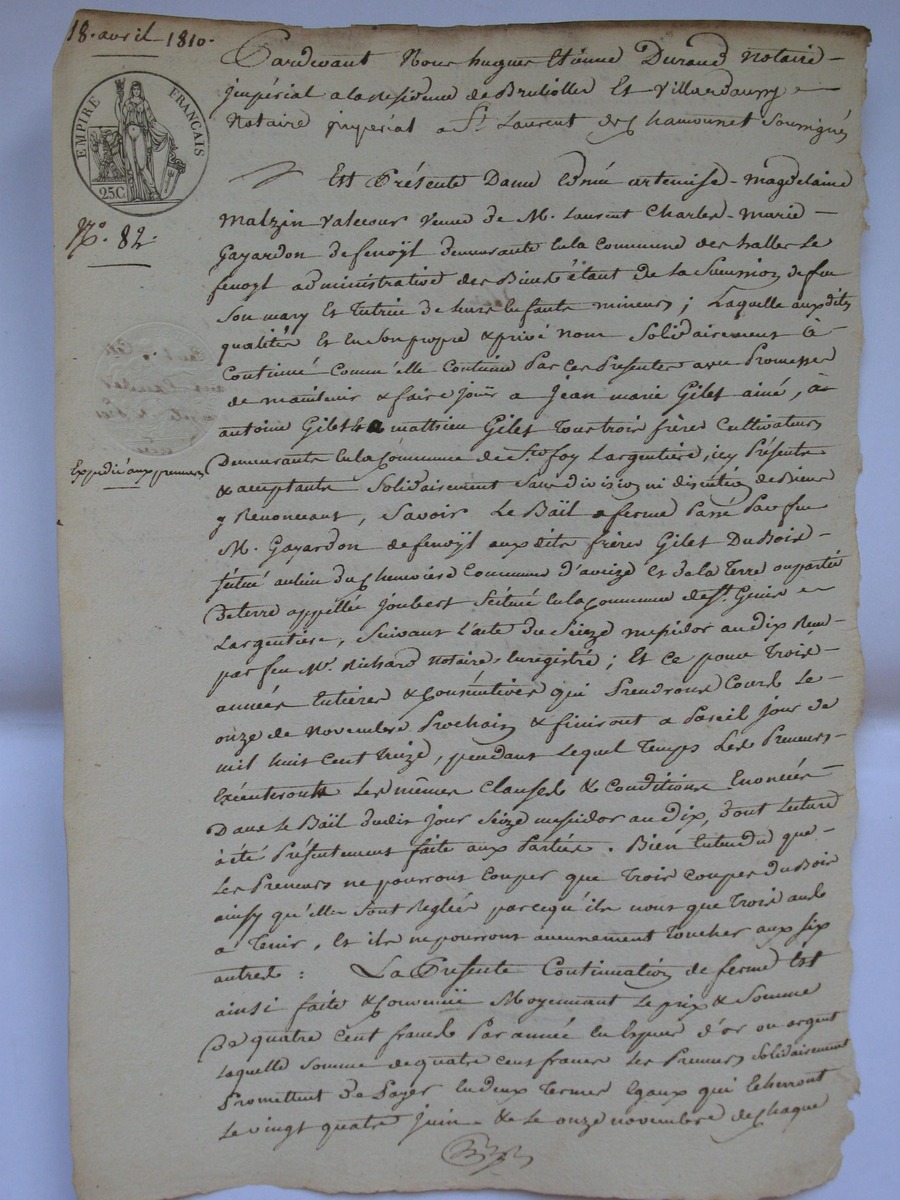 18. avril 1810.
EMPIRE FRANÇAIS
25C
N°. 82.
Expédié aux preneurs
Pardevant Nous hugues Etienne Durand Notaire
impérial a la Residence de Brulliolles Et Villardauxy
Notaire impérial a St. Laurent de Chamousset Soussignés
Est Présente Dame artemise Magdelaine
Malzin Valecour veuve de M. Laurent Charles Marie
Gayardon de fenoÿl demeurante en la Commune des halles Le
fenoyl administrative des Biens étant de la Succession de feu
Son mary Et Tutrice de leurs Enfants mineurs ; Laquelle auxdites
qualités et en son propre & privé nom Solidairement à
Continué comme elle Continue Par ces Presentes avec Promesse
de maintenir & faire joüir a Jean marie Gilet ainé, à
antoine Gilet & a mathieu Gilet Tous trois frères Cultivateurs
Demeurants en la Commune de Ste foy Largentiere, icy Présents
& acceptants Solidairement Sans division ni discution de Biens
y Renonceant, Savoir Le Bail a ferme Passé Par feu
M. Gayardon de fenoÿl aux dits frères Gilet Du Bois
Scitué au lieu du Cheneviere Commune d'aveize et de la Terre ou partie
de terre appellée Joubert Scitué en la Commune de St. Genis
Largentiere, Suivant L'acte du Seize messidor an dix Reçu
par feu Me. Richard notaire, Enregistré ; Et ce pour Trois
années Entières & Consécutives qui Prendront Cours Le
onze de Novembre Prochain & finiront a Pareil jour de
mil huit Cent Treize, pendant lequel Temps Les Preneurs
Exécuteront Les mêmes Clauses & Conditions Enoncées
Dans Le Bail dudit jour Seize messidor an dix, dont Lecture
à été Présentement faite aux Parties. Bien Entendu que
Les Preneurs ne pourront Couper que Trois coupes du Bois
ainsy qu'elles Sont Reglées parcequ'ils n'ont que Trois ans
a Tenir, Et ils ne pourront aucunement Toucher aux Six
autres : La Présente Continuation de ferme Est
ainsi faite & Convenüe Moyennant Le prix & Somme
De quatre Cent francs Par année En Espèces d'or ou argent
Laquelle Somme de quatre cent francs Les Preneurs Solidairement
Promettent De Payer En deux Termes Egaux qui Echerront
Le vingt quatre Juin & Le onze novembre de Chaque